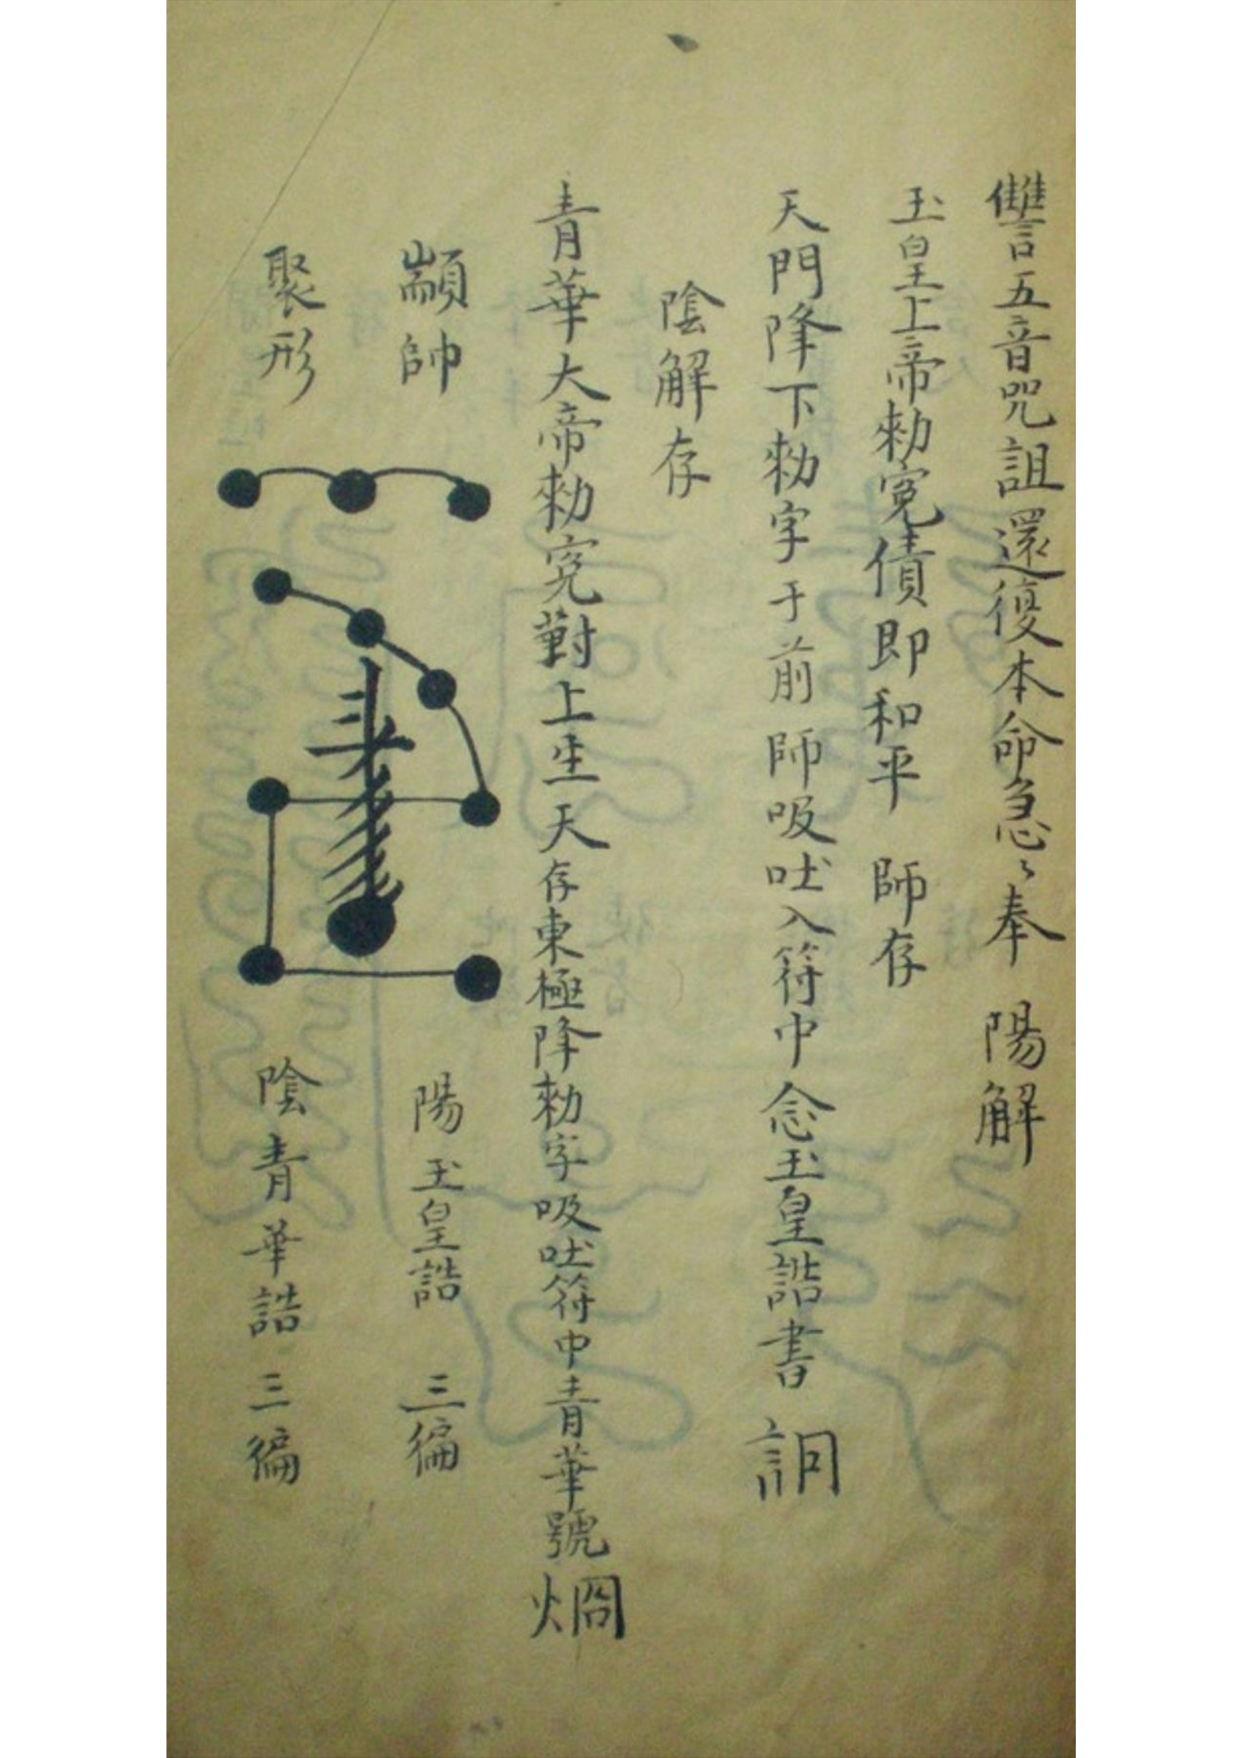 讐五音咒詛還復本命急〻奉　陽解
玉皇上帝勑冤債即和平　師存
天門降下勑字于前師吸吐入符中念玉皇誥書
陰解存
青華大帝勑冤對上生天存東極降勑字吸吐符中青華號炯
顓帥
陽玉皇誥　三徧
聚形
陰青華誥三徧